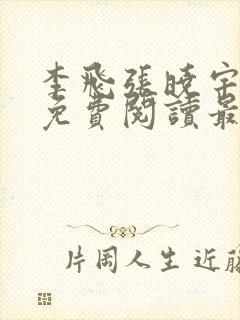 李飛張曉宇
免費閱讀最
片岡人生 近藤